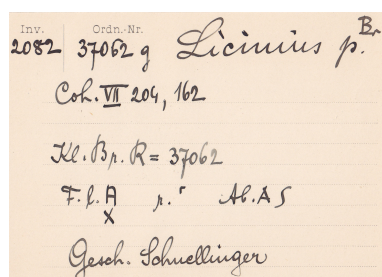 Inv. Ordn.-Nr. Br.
2082 37062 g Licinius p.
Coh. VII 204, 162
Kl. Br. R = 37062
F. l. A r. Ab. A S
X
Gesch. Schuellinger